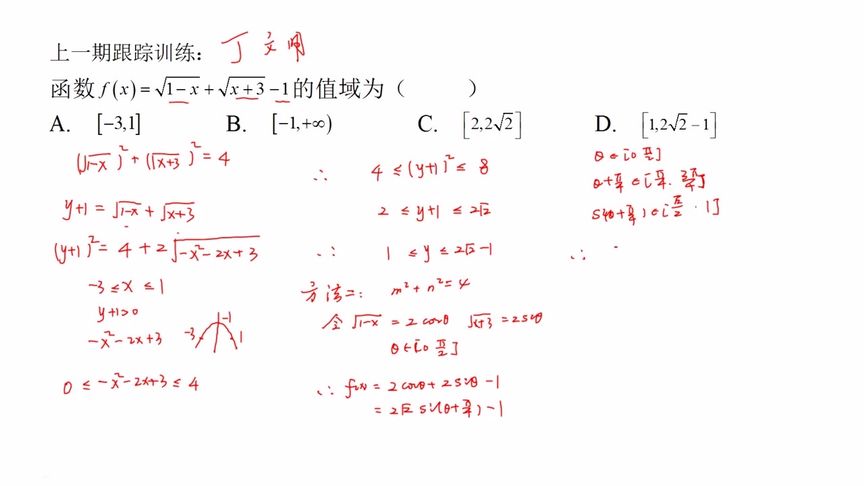 上一期跟踪训练：丁文明
函数 f(x)=√(1-x)+√(x+3)-1的值域为（ ）
A. [-3,1] B. [-1,+∞) C. [2,2√2] D. [1,2√2-1]
(√(1-x))²+(√(x+3))²=4
y+1=√(1-x)+√(x+3)
(y+1)²=4+2√(-x²-2x+3)
-3≤x≤1
y+1>0
-x²-2x+3 -3 -1 1
0≤-x²-2x+3≤4
∴ 4≤(y+1)²≤8
2≤y+1≤2√2
∴ 1≤y≤2√2-1
方法二: m²+n²=4
令 √(1-x)=2cosθ √(x+3)=2sinθ
θ∈[0 π/2]
∴ f(x)=2cosθ+2sinθ-1
=2√2 sin(θ+π/4)-1
θ∈[0 π/2]
θ+π/4∈[π/4, 3π/4]
∴